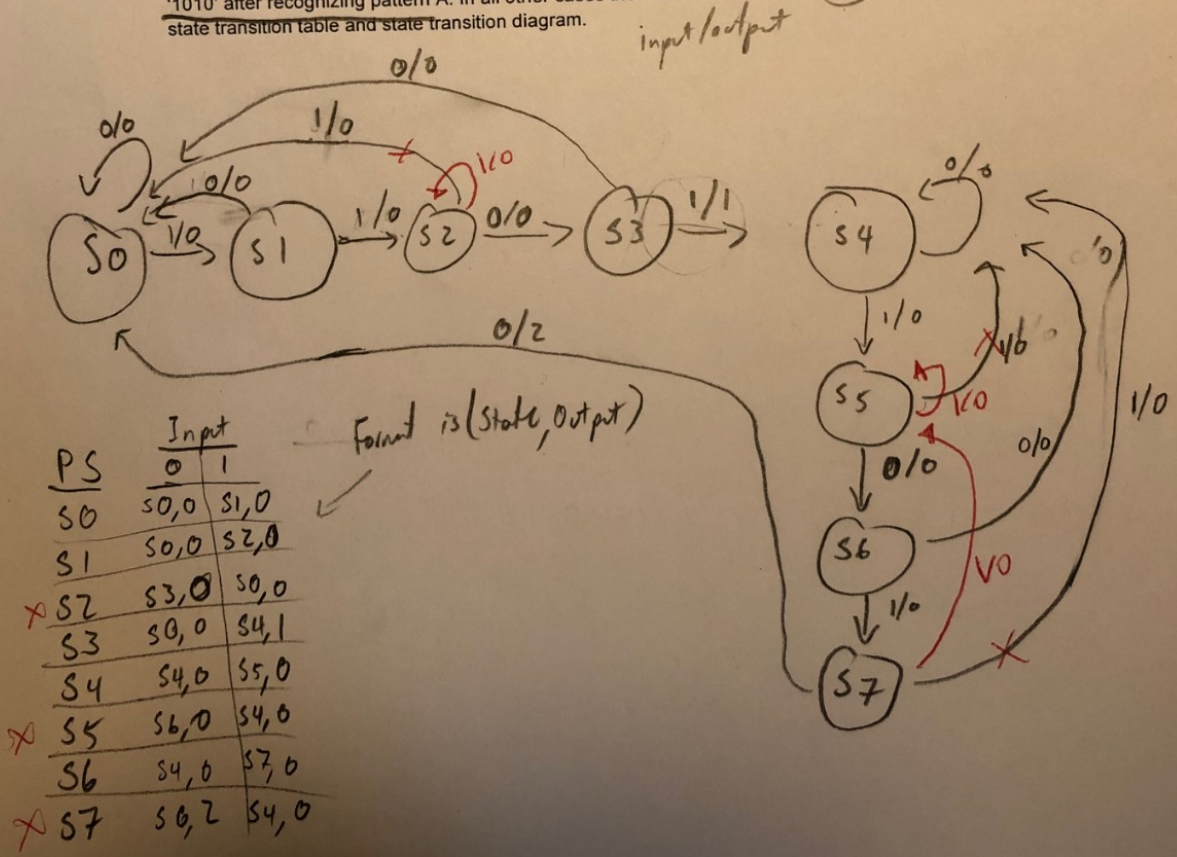 '1010' after recognizing pattern A. In all other cases
state transition table and state transition diagram.
input/output
0/0
1/0
0/0
0/0
1/0
1/0
1/0
0/0
1/1
0/0
S0
S1
S2
S3
S4
1/0
0/2
1/0
S5
1/0
1/0
0/0
0/0
S6
1/0
1/0
S7
Format is (State, Output)
Input
PS 0 1
S0 S0,0 S1,0
S1 S0,0 S2,0
x S2 S3,0 S0,0
S3 S0,0 S4,1
S4 S4,0 S5,0
x S5 S6,0 S4,0
S6 S4,0 S7,0
x S7 S0,2 S4,0